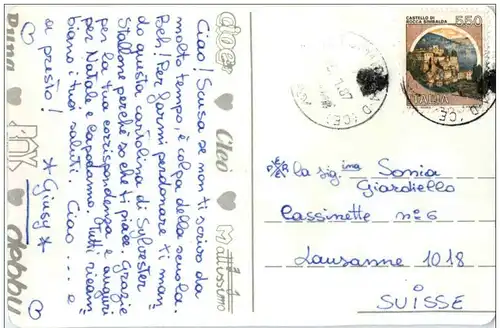 Ciao! Scusa se non ti scrivo da
molto tempo, è colpa della scuola.
Beh! Per farmi perdonare ti man-
do questa cartolina di Sylvester
Stallone perché so che ti piace. Grazie
per la tua corrispondenza e auguri
per Natale e Capodanno. Tutti ricam-
biano i tuoi saluti. Ciao.... e
a presto!
* Giusy *
Cleo
Mattissimo
CASTELLO DI
ROCCA SINIBALDA
550
ITALIA
x la sig.ina Sonia
Giardiello
Cassinette n° 6
Lausanne 1018
SUISSE